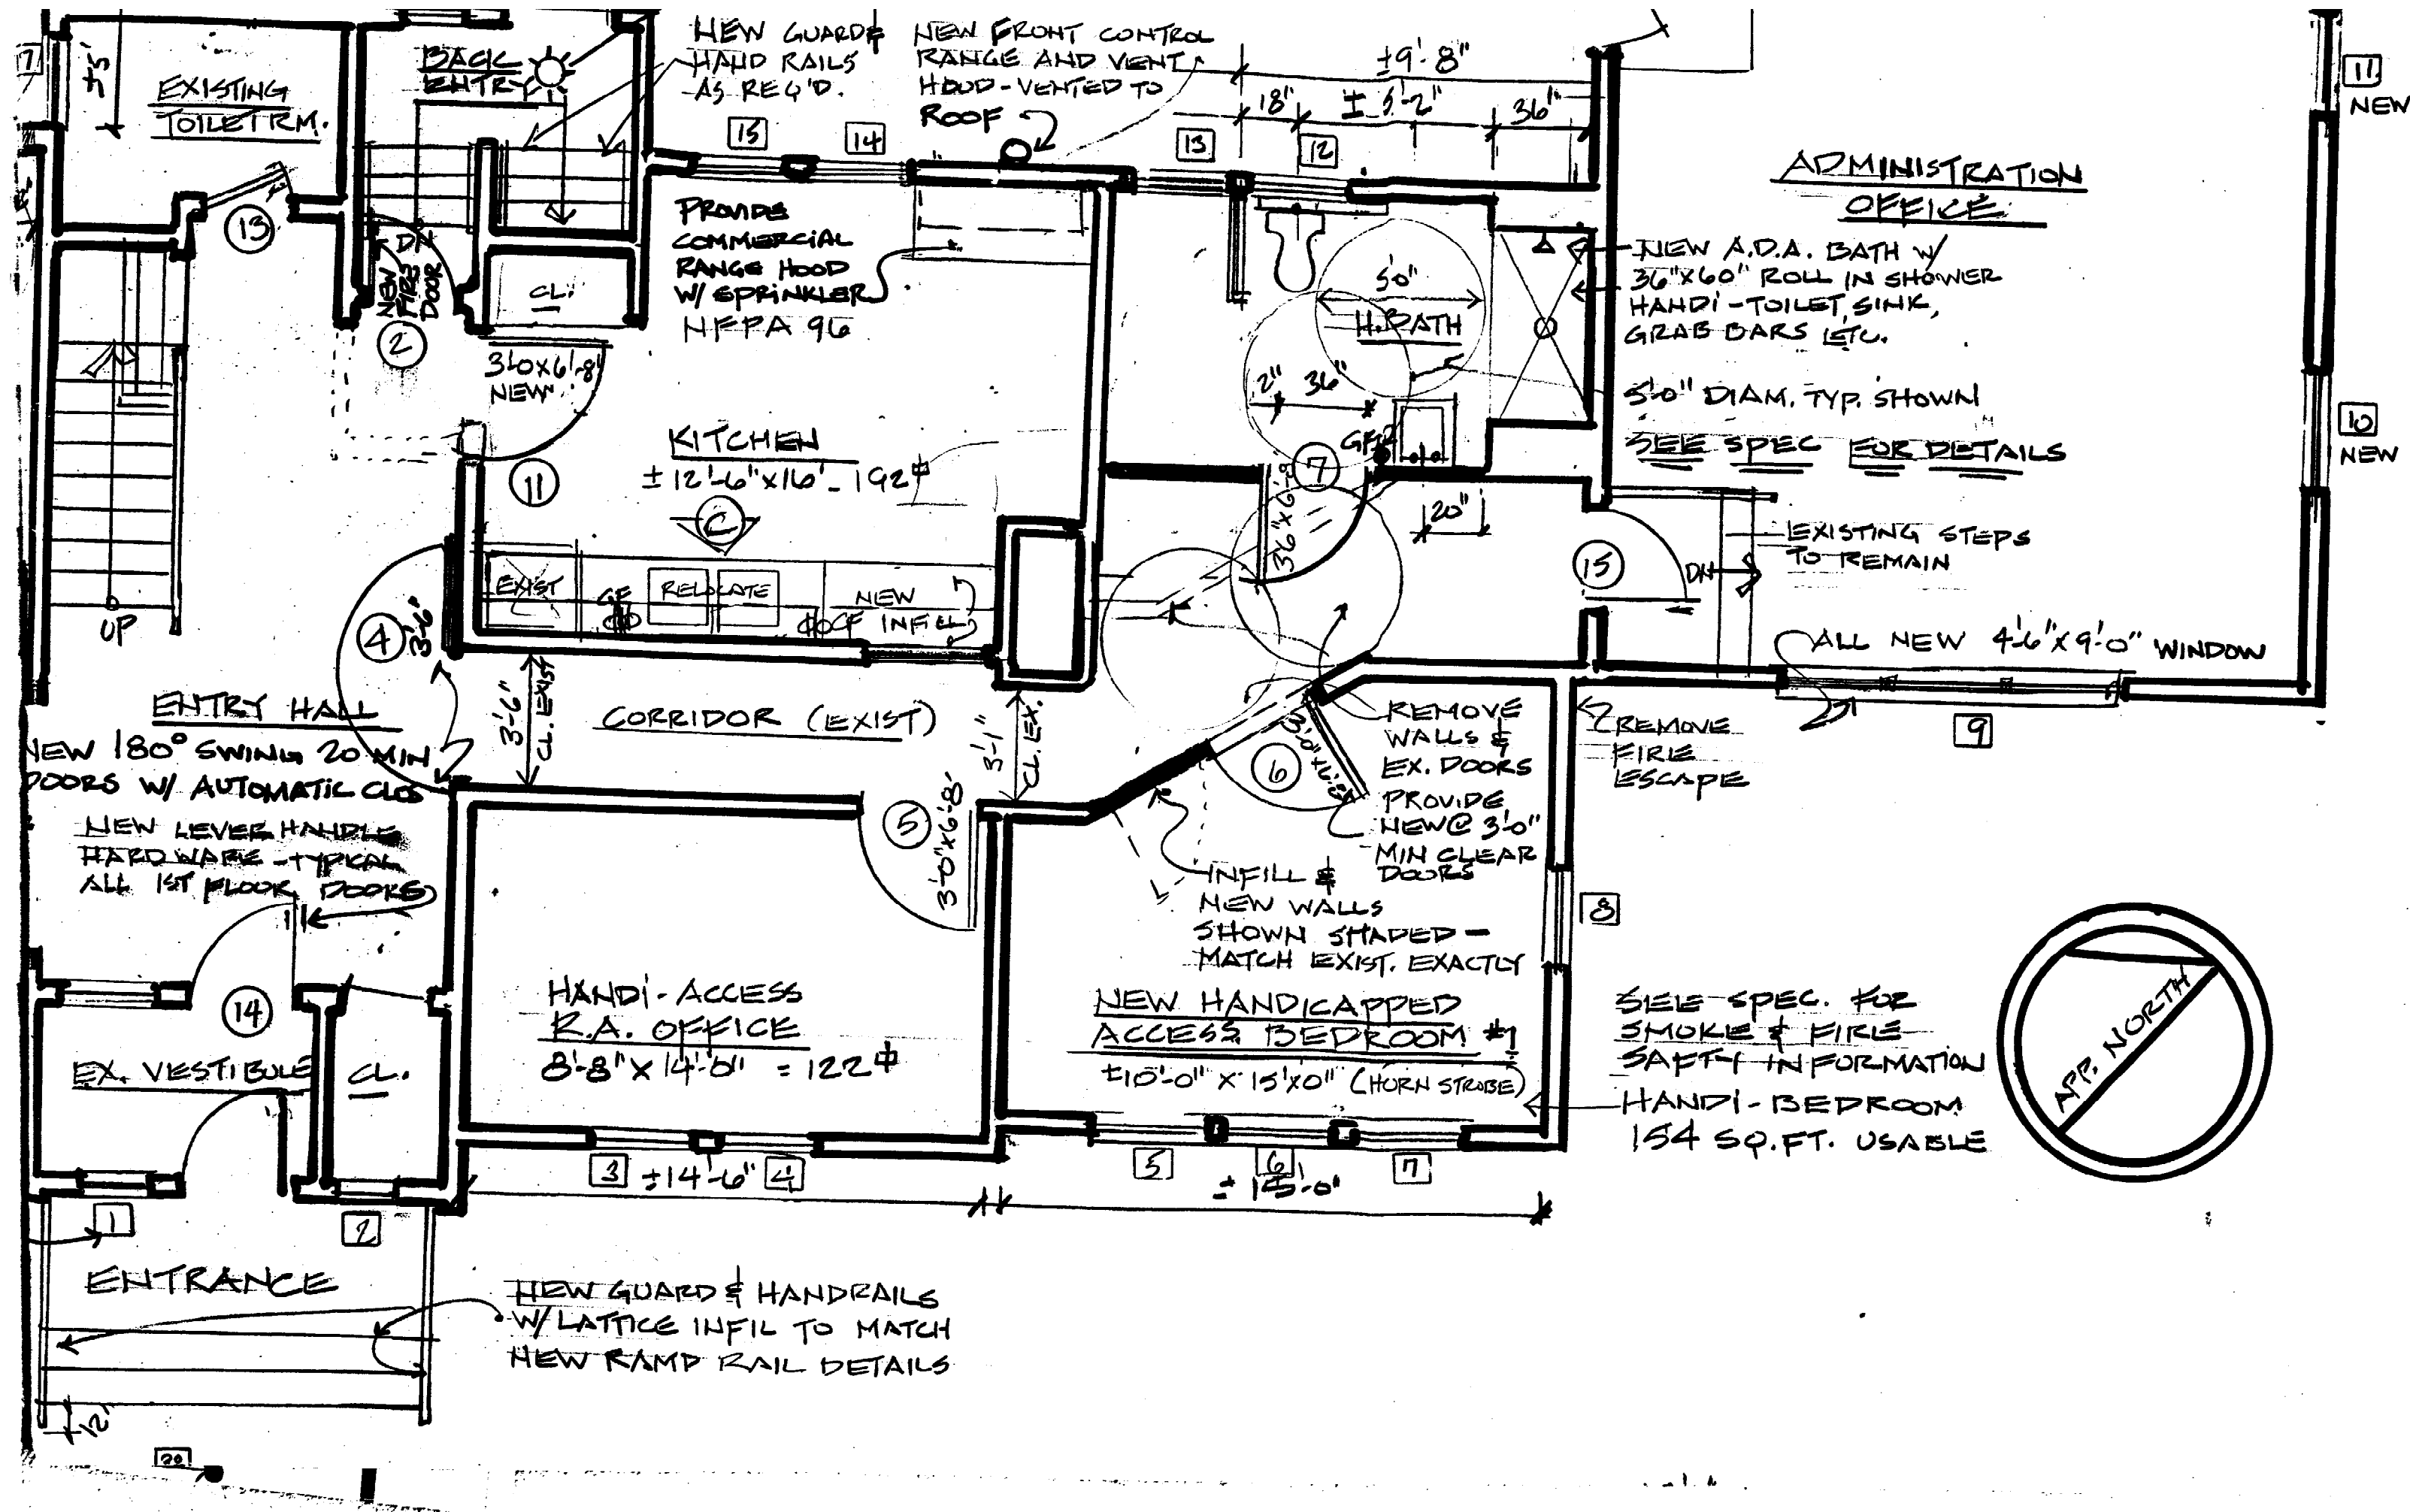 7
EXISTING
TOILET RM.
BACK
ENTRY
NEW GUARD &
HAND RAILS
AS REQ'D.
NEW FRONT CONTROL
RANGE AND VENT
HOOD - VENTED TO
ROOF
±9'-8"
18"
± 5'-2"
36"
15
14
13
12
11
NEW
ADMINISTRATION
OFFICE
13
DN
NEW
FIRE
DOOR
2
CL.
PROVIDE
COMMERCIAL
RANGE HOOD
W/ SPRINKLER
NFPA 96
5'0"
H. BATH
NEW A.D.A. BATH W/
36"X60" ROLL IN SHOWER
HANDI-TOILET, SINK,
GRAB BARS ETC.
3'-0X6'-8"
NEW
2"
36"
5'-0" DIAM. TYP. SHOWN
SEE SPEC FOR DETAILS
10
NEW
KITCHEN
±12'-6"X16' - 192
C
11
7
36"X6'-8
20"
EXISTING STEPS
TO REMAIN
15
DN
EXIST
GF
RELOCATE
NEW
GF INFILL
UP
4
3'-6"
ALL NEW 4'-6"X9'-0" WINDOW
ENTRY HALL
3'-6"
CL. EXIST
CORRIDOR (EXIST)
3'-1"
CL. EX.
REMOVE
WALLS &
EX. DOORS
PROVIDE
NEW @ 3'-0"
MIN CLEAR
DOORS
REMOVE
FIRE
ESCAPE
9
NEW 180° SWING 20 MIN
DOORS W/ AUTOMATIC CLOS
6
3'-0"X6'-8
NEW LEVER HANDLE
HARDWARE - TYPICAL
ALL 1ST FLOOR DOORS
5
3'-0"X6'-8"
INFILL &
NEW WALLS
SHOWN SHADED -
MATCH EXIST. EXACTLY
8
14
HANDI-ACCESS
R.A. OFFICE
8'-8" X 14'-0" = 122
NEW HANDICAPPED
ACCESS BEDROOM #1
±10'-0" X 15'X0" (HORN STROBE)
SEE SPEC. FOR
SMOKE & FIRE
SAFTY INFORMATION
HANDI-BEDROOM
154 SQ.FT. USABLE
APP. NORTH
EX. VESTIBULE
CL.
3
±14'-6"
4
5
6
7
1
2
ENTRANCE
NEW GUARD & HANDRAILS
W/ LATTICE INFIL TO MATCH
NEW RAMP RAIL DETAILS
12"
20